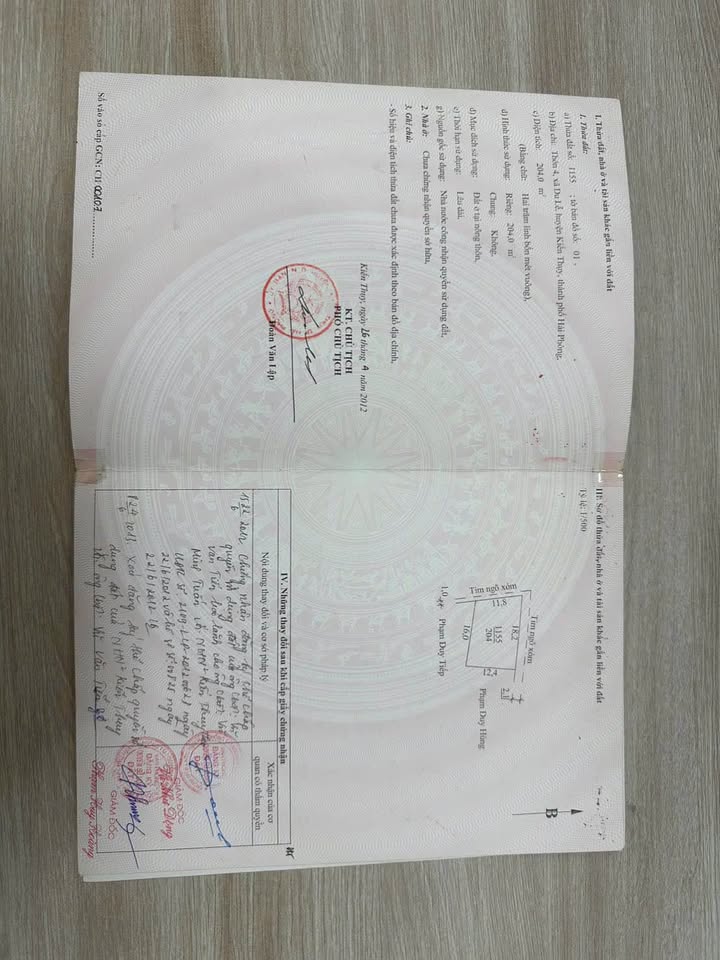 I. Thửa đất, nhà ở và tài sản khác gắn liền với đất
1. Thửa đất:
a) Thửa đất số: 1155 ; tờ bản đồ số: 01 ,
b) Địa chỉ: Thôn 4, xã Du Lễ, huyện Kiến Thuỵ, thành phố Hải Phòng,
c) Diện tích: 204,0 m²
(Bằng chữ: Hai trăm linh bốn mét vuông),
d) Hình thức sử dụng: Riêng: 204,0 m²
Chung: Không,
đ) Mục đích sử dụng: Đất ở tại nông thôn,
e) Thời hạn sử dụng: Lâu dài,
g) Nguồn gốc sử dụng: Nhà nước công nhận quyền sử dụng đất,
2. Nhà ở: Chưa chứng nhận quyền sở hữu,
3. Ghi chú:
- Số hiệu và diện tích thửa đất chưa được xác định theo bản đồ địa chính,
Kiến Thuỵ, ngày 26 tháng 4 năm 2012
KT. CHỦ TỊCH
PHÓ CHỦ TỊCH
Đoàn Văn Lập
Số vào sổ cấp GCN: CH 00207
III. Sơ đồ thửa đất, nhà ở và tài sản khác gắn liền với đất
Tỷ lệ: 1/500
B
Tim ngõ xóm
18,2
2,8
Tim ngõ xóm
11,8
1155
204
12,3
Phạm Duy Hùng
16,0
1,0
Phạm Duy Tiếp
IV. Những thay đổi sau khi cấp giấy chứng nhận
Nội dung thay đổi và cơ sở pháp lý
Xác nhận của cơ
quan có thẩm quyền
2012 Chứng nhận đăng ký thế chấp
quyền sử dụng đất của ông
văn Tiến bảo lãnh cho ông
Tuấn với NHN2 Kiến Thuỵ
ngày
22/6/2012
22/6/2012
2013 Xoá đăng ký thế chấp quyền sử
dụng đất của NHN2 Kiến Thuỵ
ông văn Tiến
GIÁM ĐỐC
GIÁM ĐỐC